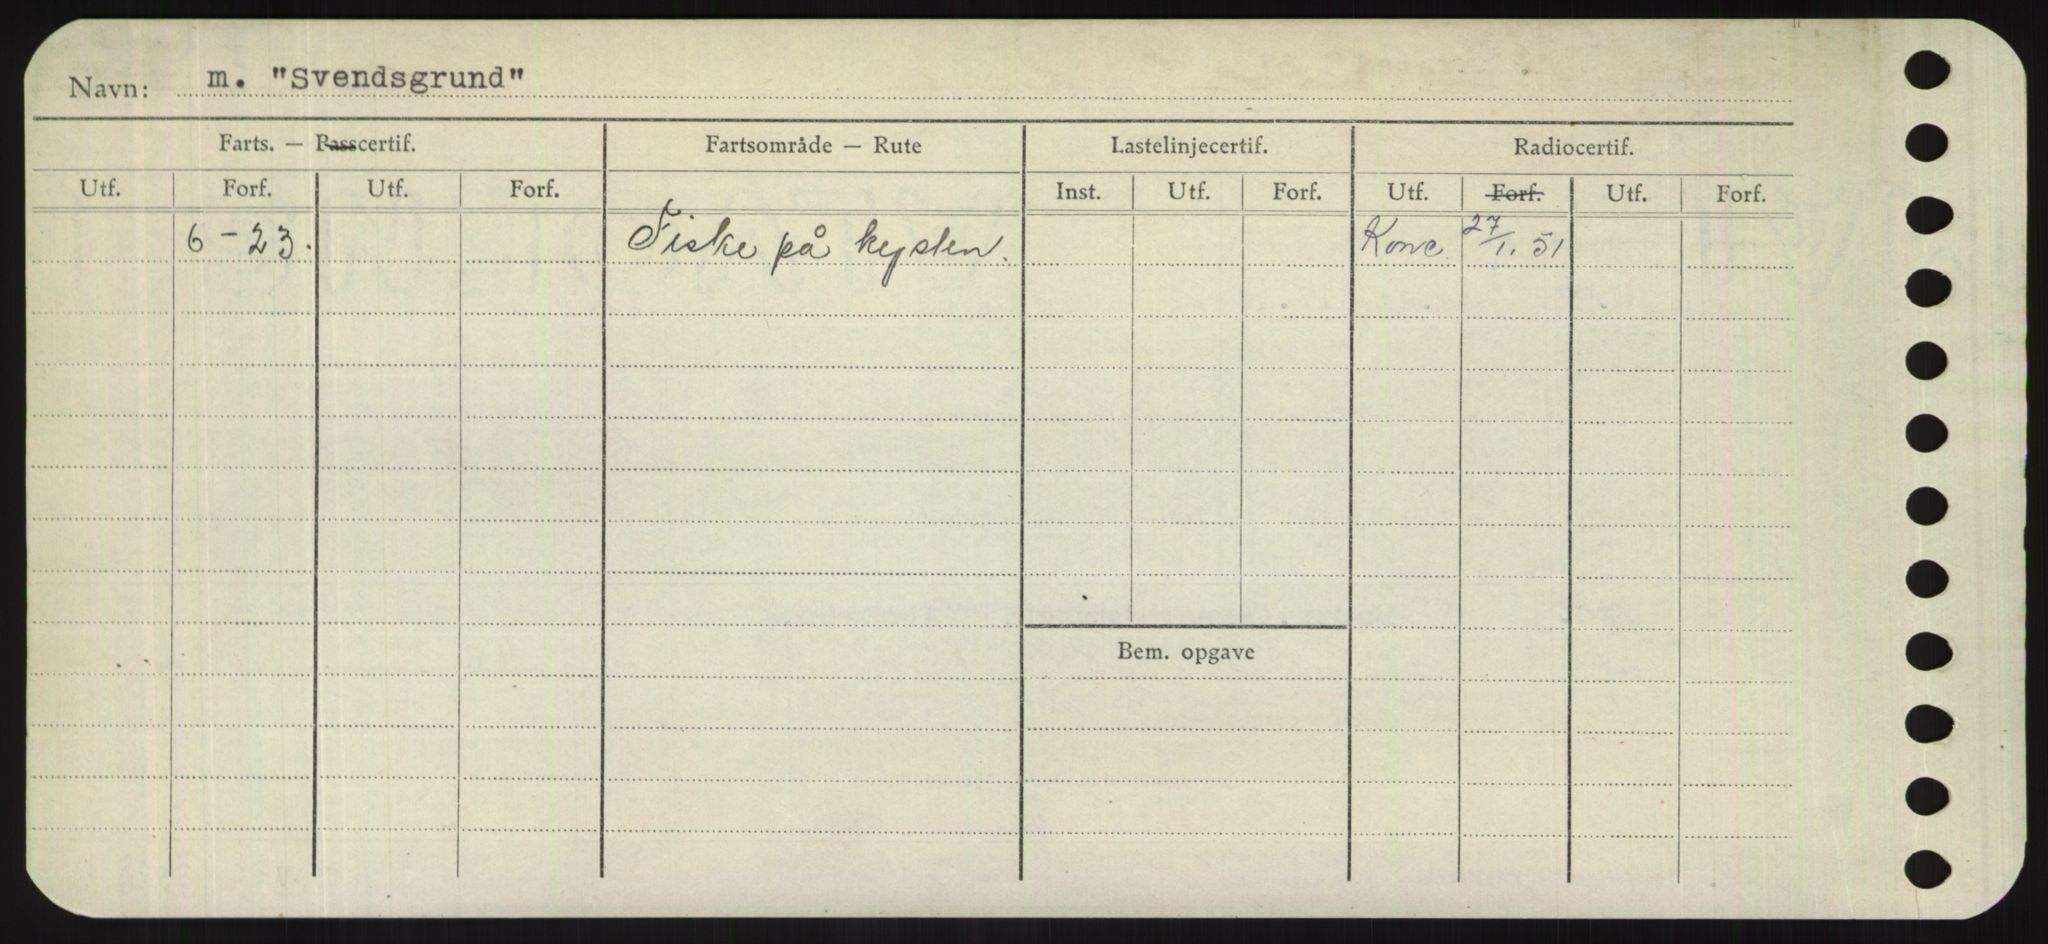 Navn: m. "Svendsgrund"
Farts. — Passcertif. Fartsområde — Rute Lastelinjecertif. Radiocertif.
Utf. Forf. Utf. Forf. Inst. Utf. Forf. Utf. Forf. Utf. Forf.
6 - 23. Fiske på kysten. Konc. 27/1. 51
Bem. opgave